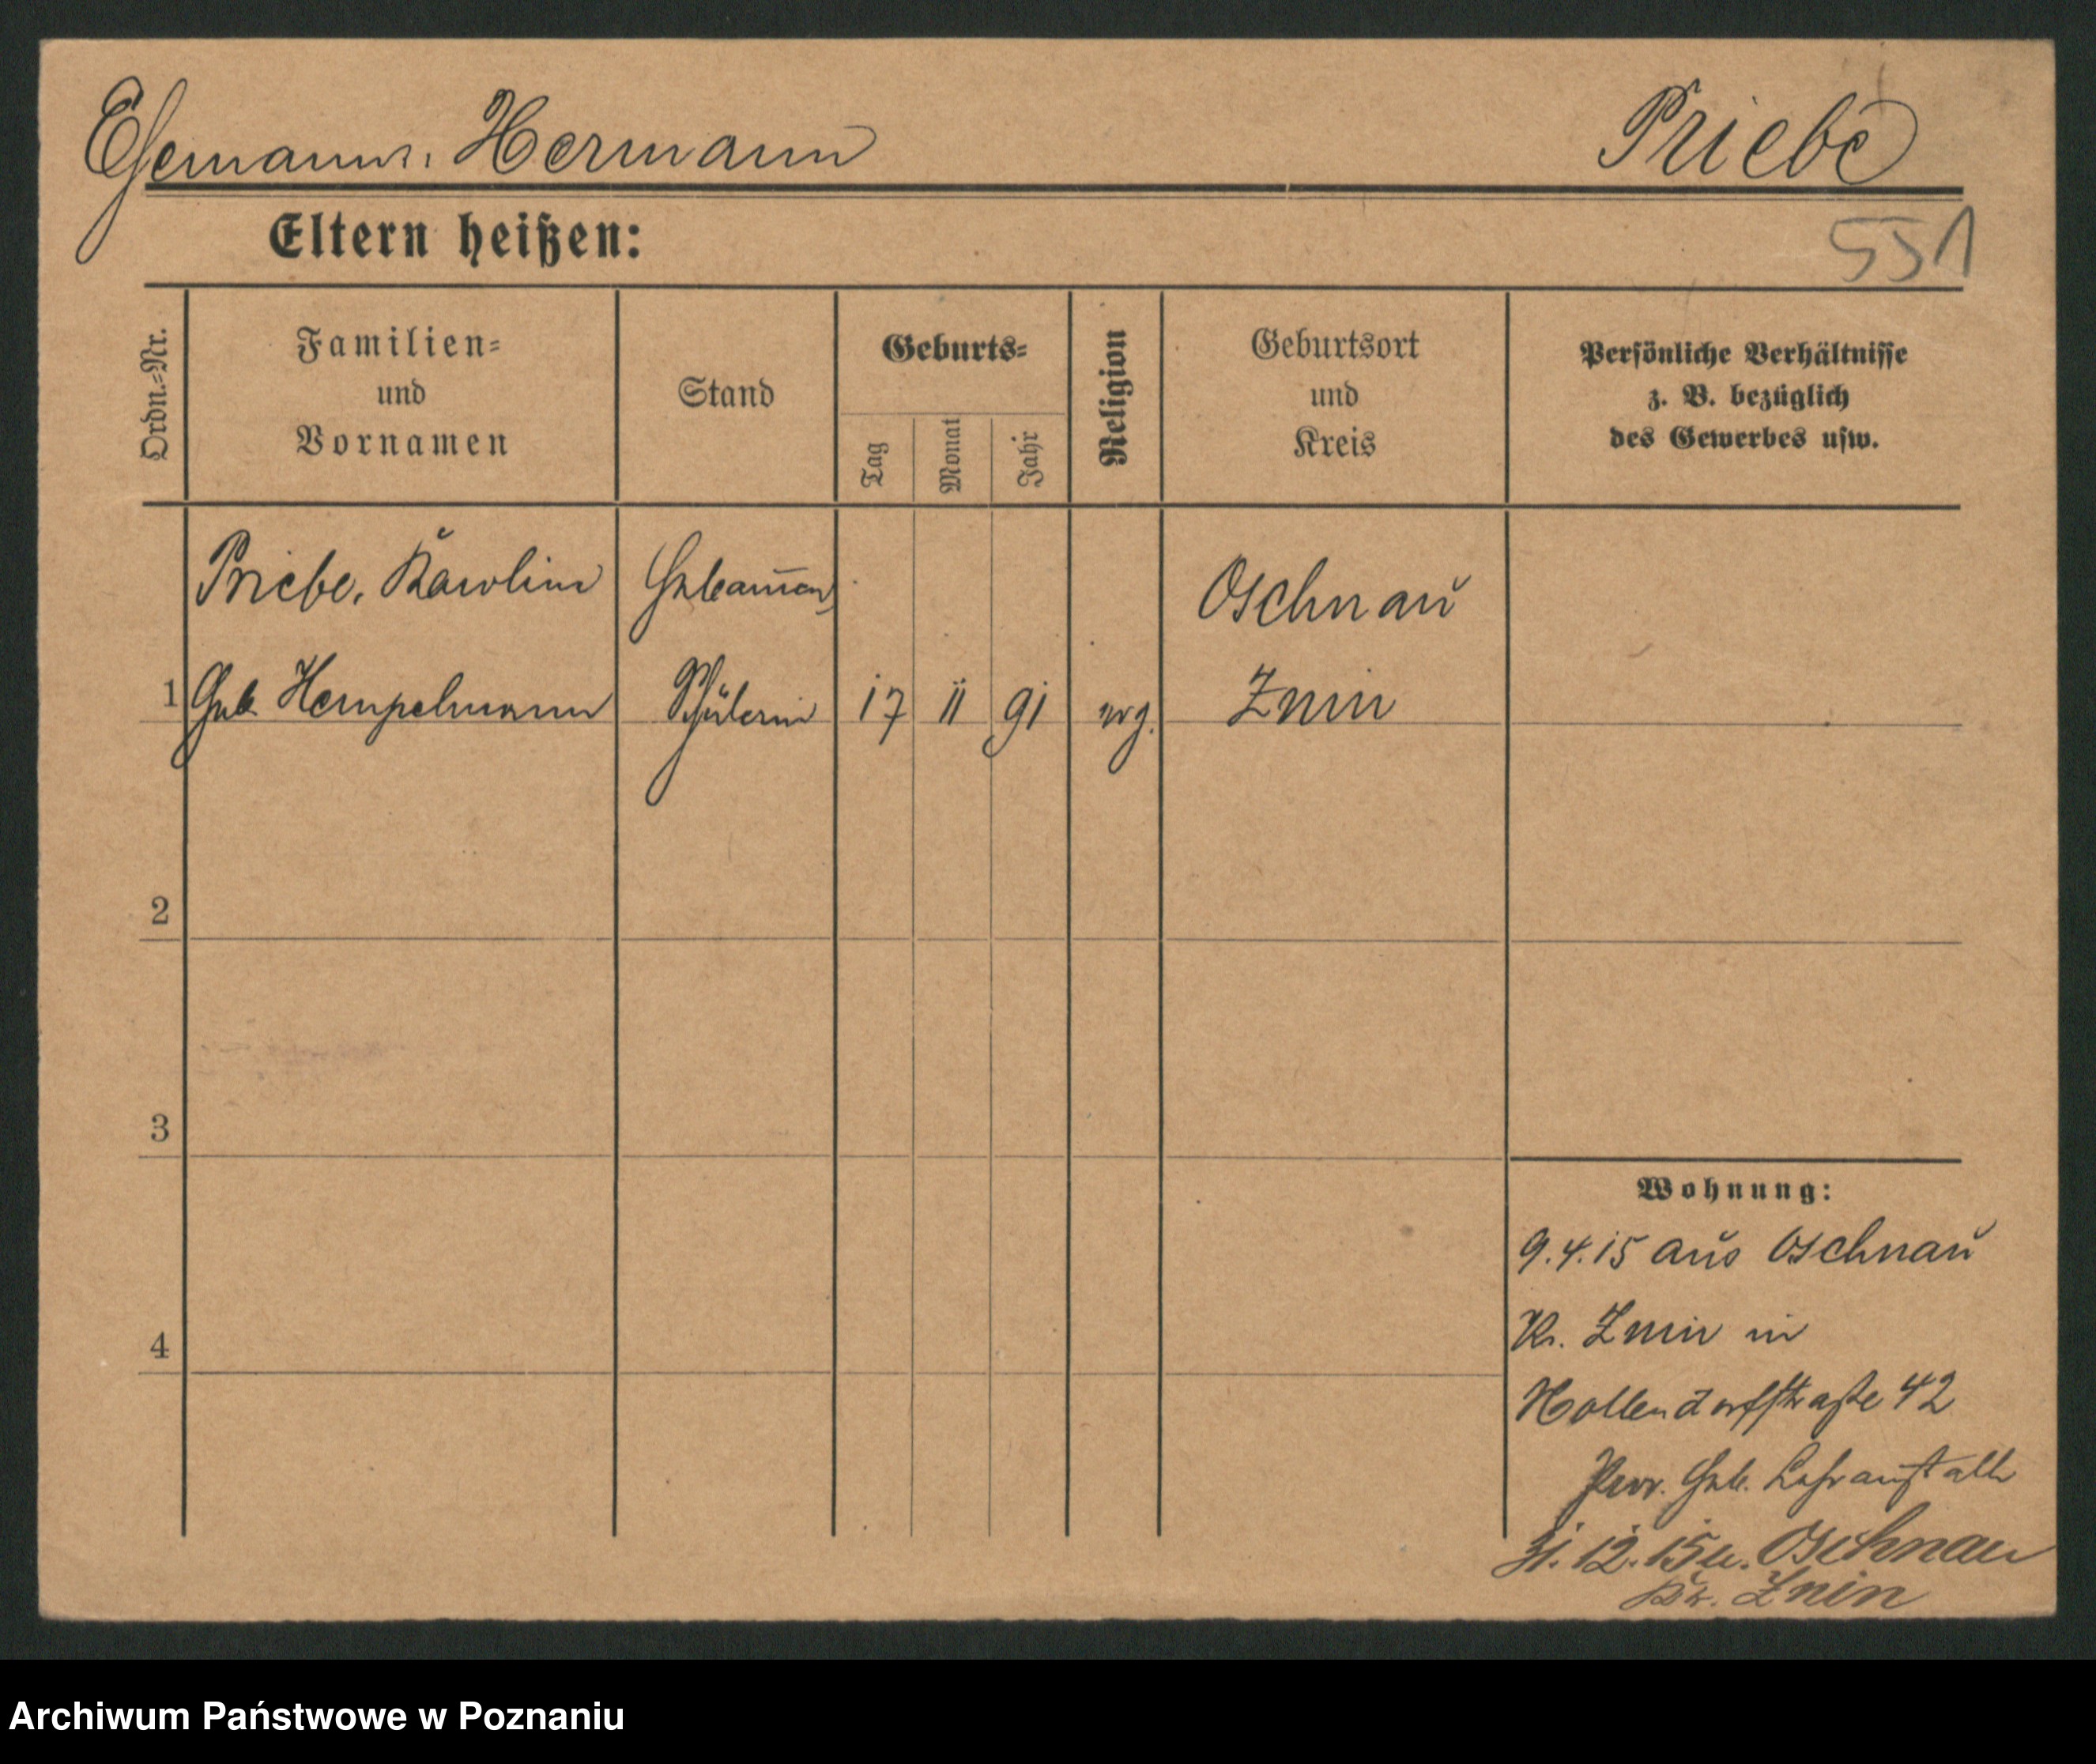 Ehemann: Hermann Priebe
Eltern heißen:
551
Ordn.=Nr.
Familien=
und
Vornamen
Stand
Geburts=
Tag
Monat
Jahr
Religion
Geburtsort
und
Kreis
Persönliche Verhältnisse
z. B. bezüglich
des Gewerbes usw.
Priebe, Karolin
Oschnau
1 Geb Hempelmann Schülerin 17 11 91 evg. Znin
2
3
4
Wohnung:
9.4.15 aus Oschnau
Kr. Znin in
Hollendorfstraße 42
Prov. Heb. Lehranstalt
31.12.15 u. Oschnau
Kr. Znin
Archiwum Państwowe w Poznaniu